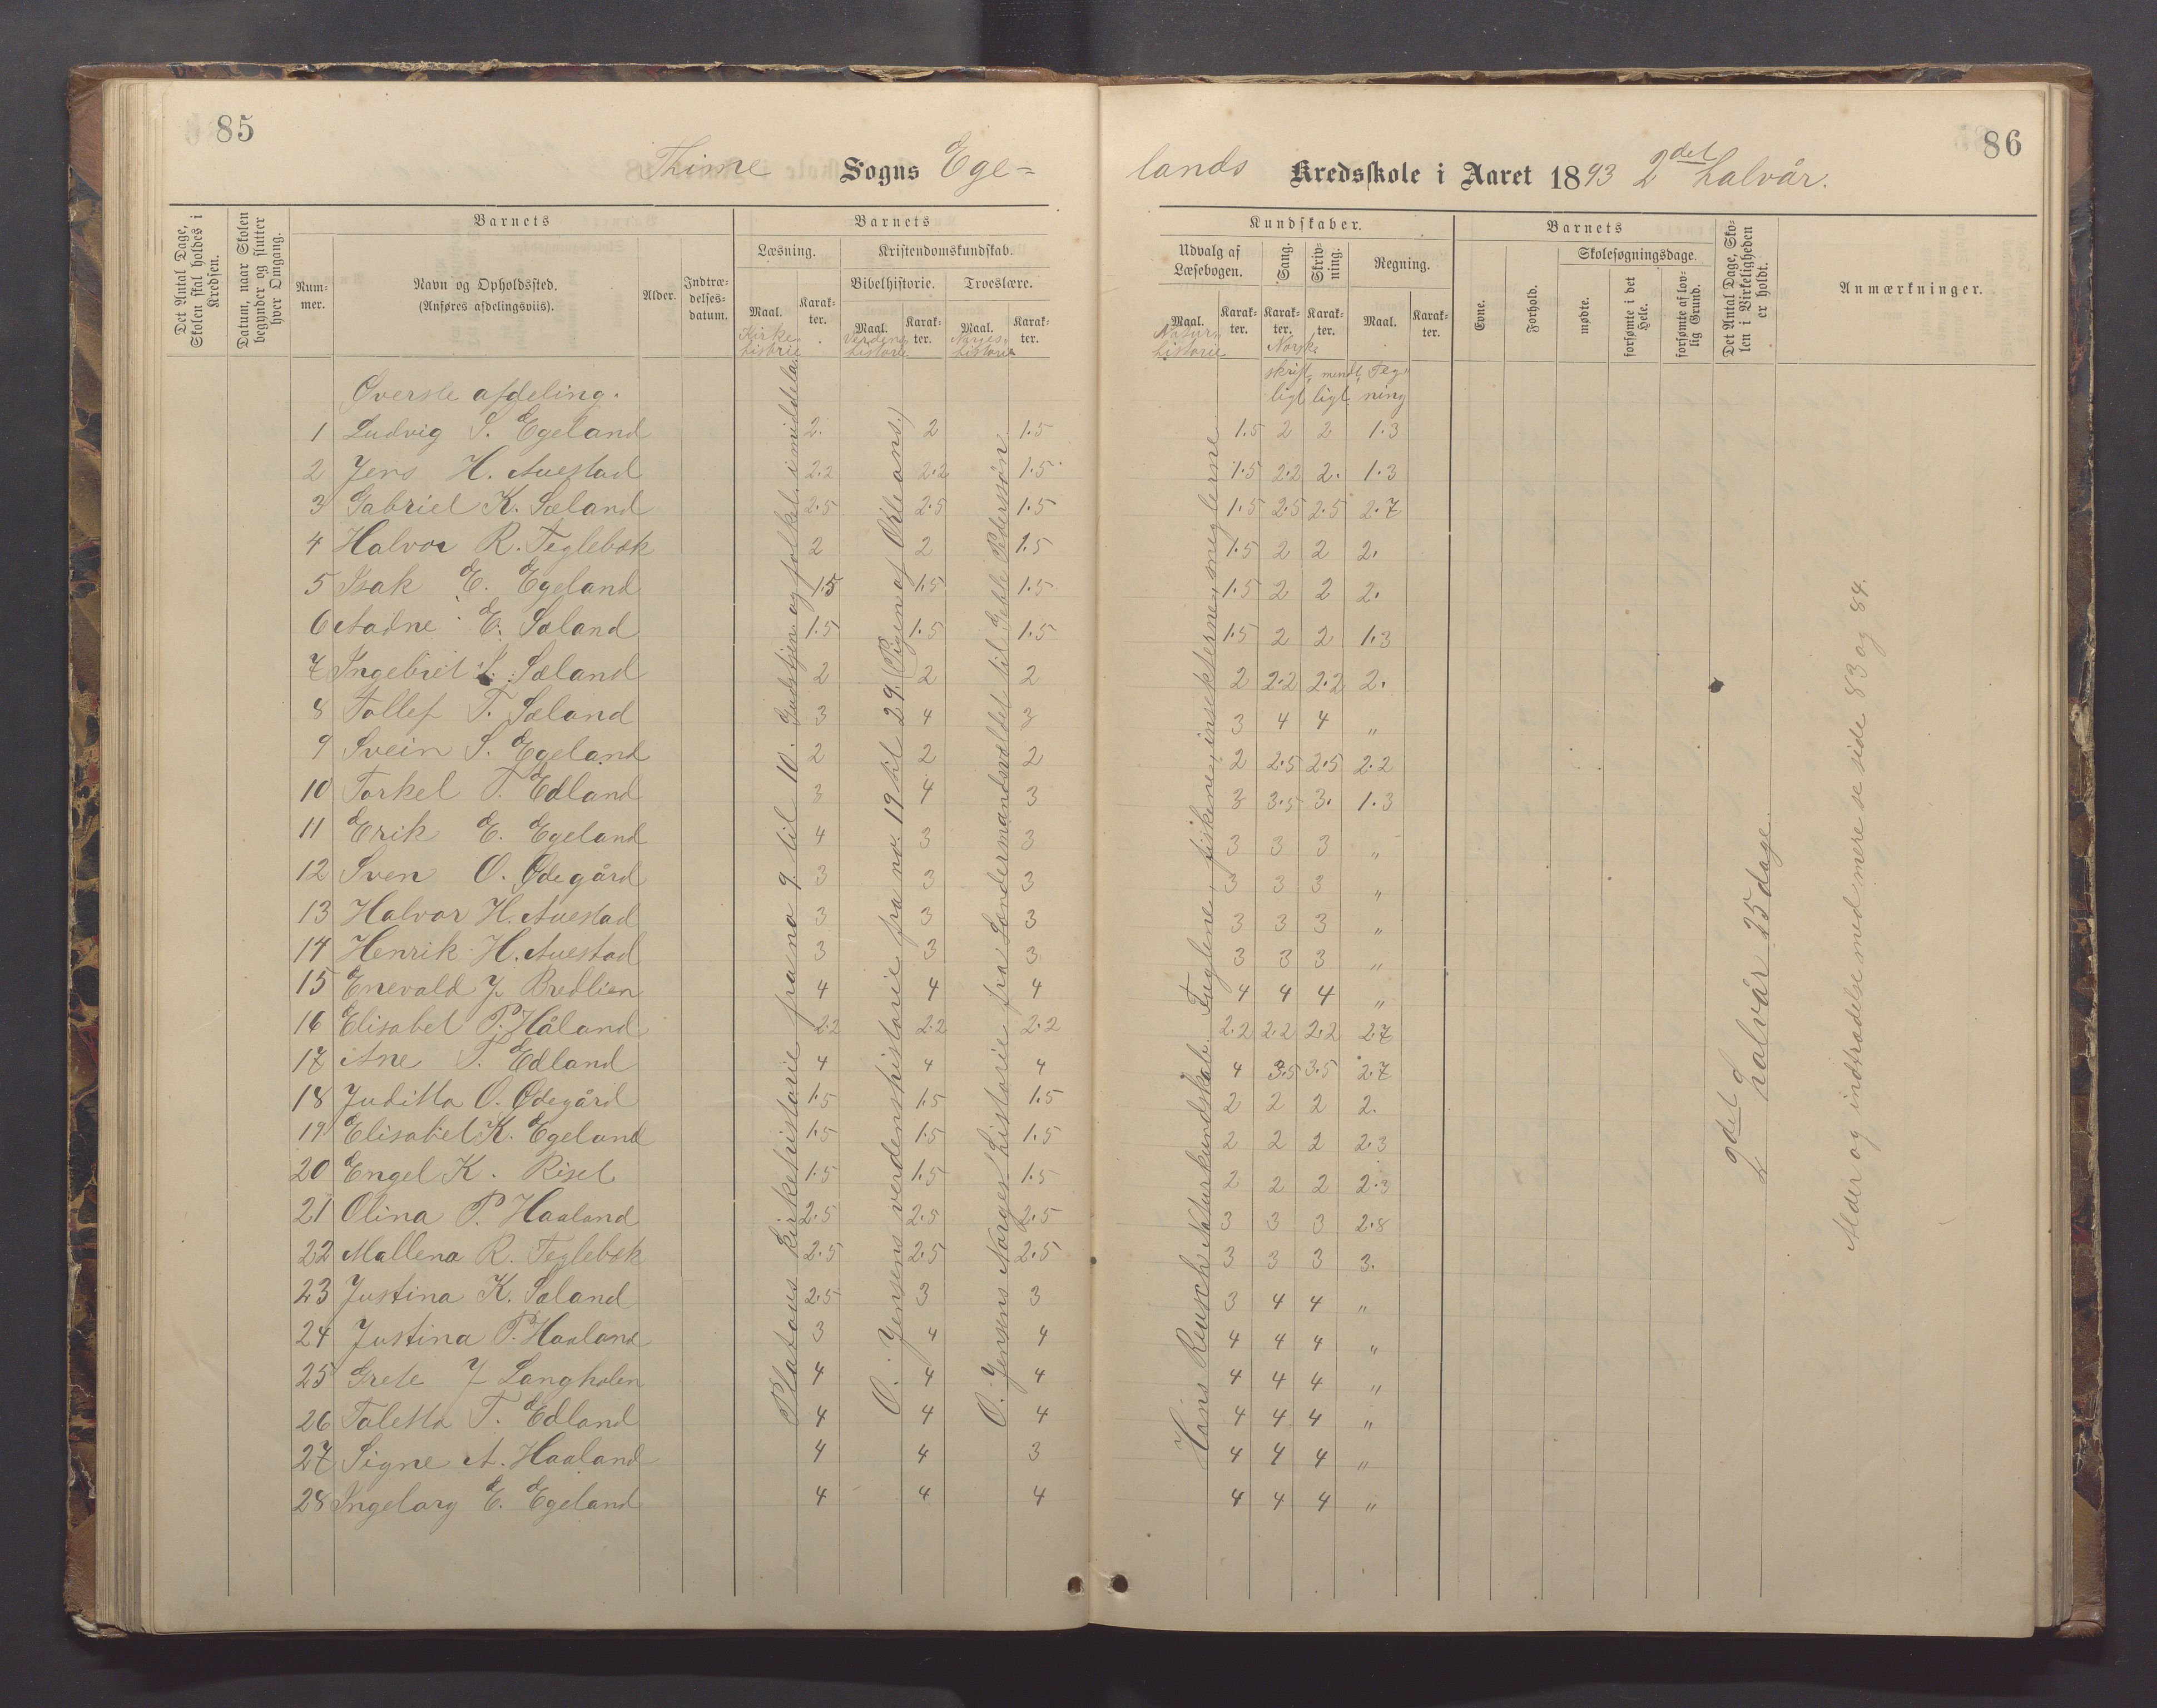 85
86
Thime Sogns Ege=
lands Kredsskole i Aaret 1893 2det halvår.
Det Antal Dage, Skolen skal holdes i Kredsen.
Datum, naar Skolen begynder og slutter hver Omgang.
Barnets
Num-
mer.
Navn og Opholdssted.
(Anføres afdelingsviis).
Alder.
Indtræ-
delses-
datum.
Barnets
Læsning.
Kristendomskundskab.
Bibelhistorie. Troeslære.
Maal. Karak-
ter. Maal. Karak-
ter. Maal. Karak-
ter.
Kirke historie
Verdens historie
Norges historie
Kundskaber.
Udvalg af
Læsebogen. Sang. Skriv-
ning. Regning.
Maal. Karak-
ter. Karak-
ter. Karak-
ter. Maal. Karak-
ter.
Natur historie
Norske
skrift- mundt- Teg-
ligt ligt ning
Barnets
Evne. Forhold.
Skolesøgningsdage.
mødte. forsømte i det Hele. forsømte af lov-
lig Grund.
Det Antal Dage, Sko-
len i Virkeligheden
er holdt.
Anmærkninger.
Øverste afdeling.
1 Ludvig S. Egeland 2. 2 1.5 1.5 2 2 1.3
2 Jens H. Auestad 2.2 2.2 1.5 1.5 2.2 2. 1.3
3 Gabriel K. Sæland 2.5 2.5 1.5 1.5 2.5 2.5 2.7
4 Halvor R. Teglebæk 2 2 1.5 1.5 2 2 2.
5 Isak E. Egeland 1.5 1.5 1.5 1.5 2 2 2.
6 Aadne E. Sæland 1.5 1.5 1.5 1.5 2 2 1.3
7 Ingebret S. Sæland 2 2 2 2 2.2 2.2 2.
8 Tollef T. Sæland 3 4 3 3 4 4 "
9 Svein S. Egeland 2 2 2 2 2.5 2.5 2.2
10 Torkel T. Edland 3 4 3 3 3.5 3. 1.3
11 Erik E. Egeland 4 3 3 3 3 3 "
12 Sven O. Ødegård 3 3 3 3 3 3 "
13 Halvor H. Auestad 3 3 3 3 3 3 "
14 Henrik H. Auestad 3 3 3 3 3 3 "
15 Enevald J. Bredlien 4 4 4 4 4 4 "
16 Elisabet P. Håland 2.2 2.2 2.2 2.2 2.2 2.2 2.7
17 Ane T. Edland 4 4 4 4 3.5 3.5 2.7
18 Juditta O. Ødegård 1.5 1.5 1.5 2 2 2 2.
19 Elisabet K. Egeland 1.5 1.5 1.5 2 2 2 2.3
20 Engel K. Risel 1.5 1.5 1.5 2 2 2 2.3
21 Olina P. Haaland 2.5 2.5 2.5 3 3 3 2.8
22 Mallena R. Teglebæk 2.5 2.5 2.5 3 3 3 3.
23 Justina K. Sæland 2.5 3 3 3 4 4 "
24 Justina P. Haaland 3 4 4 4 4 4 "
25 Grete J Langholen 4 4 4 4 4 4 "
26 Taletta T. Edland 4 4 4 4 4 4 "
27 Signe A. Haaland 4 4 3 4 4 4 "
28 Ingeborg E. Egeland 4 4 4 4 4 4 "
Platous kirkehistorie fra no 9 til 10. Gudstjen. og folket i middelal.
O. Jensens verdenshistorie fra no. 19 til 29. (Pigen af Orleans.)
O. Jensens Norges historie fra Sendermandsvaldet til Geble Pederssøn.
Hans Reusch Naturkundskab. Fuglene, fiskene, insekterne, meglerne
2det halvår 25 dage.
Alder og indtrædelse med mere se side 83 og 84.